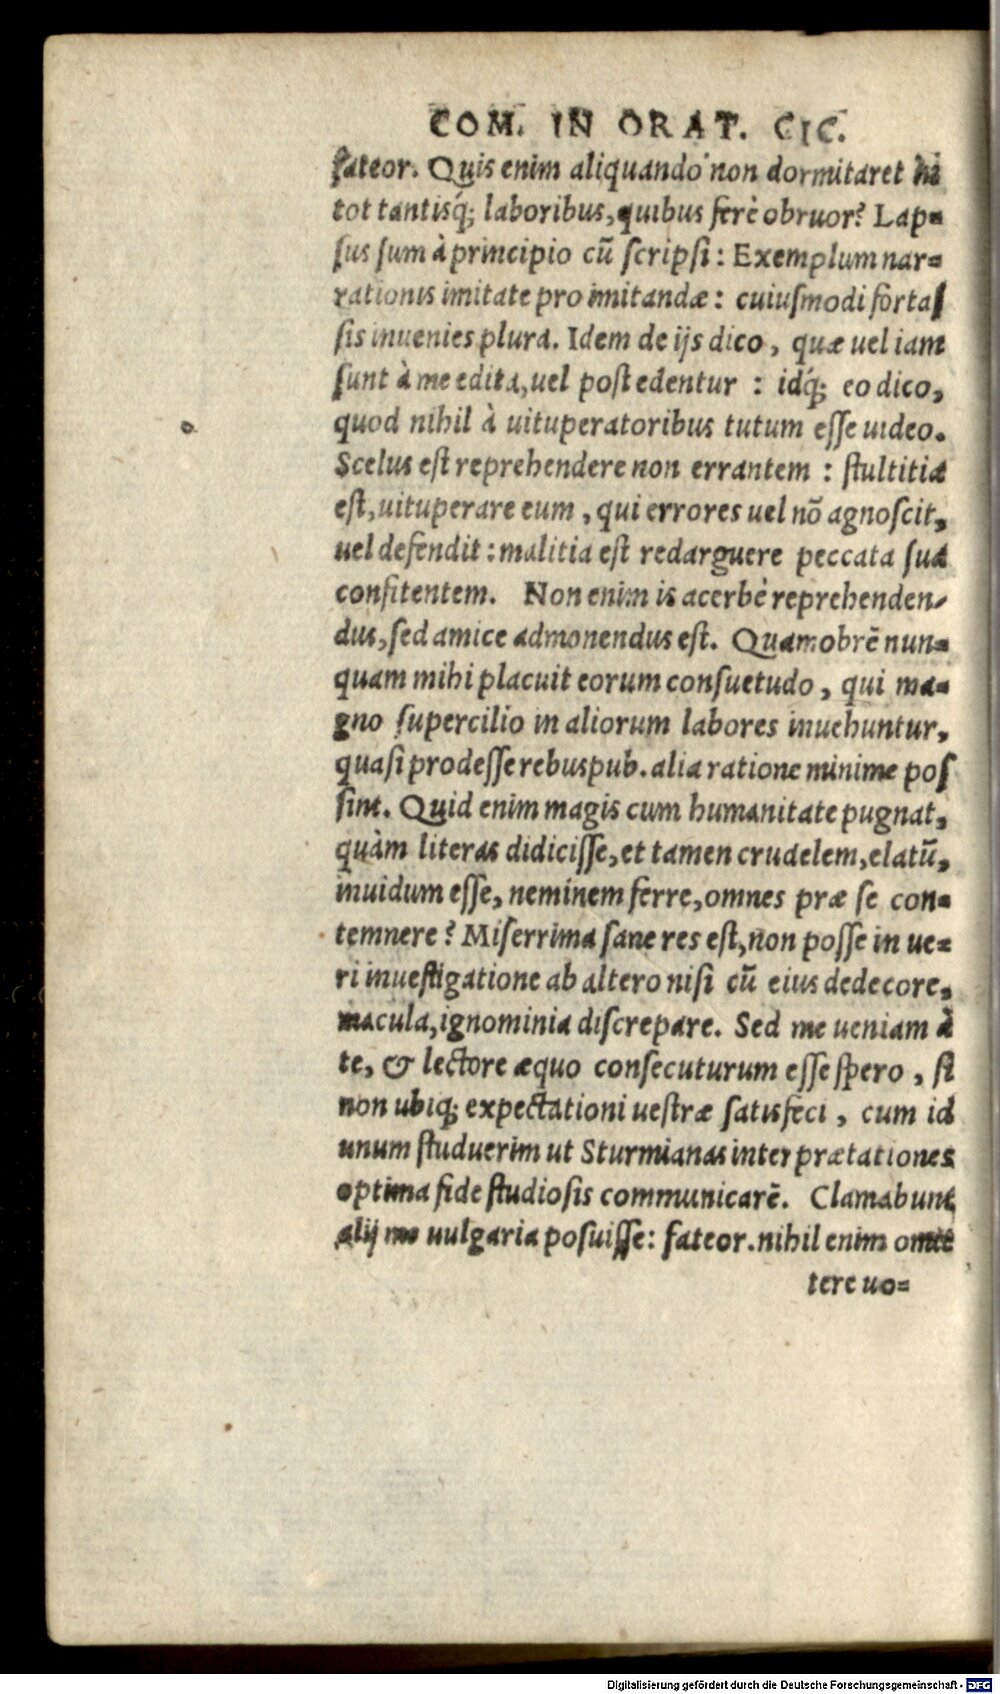 COM. IN ORAT. CIC.
fateor. Quis enim aliquando non dormitaret in
tot tantisq́; laboribus, quibus ferè obruor? Lap=
sus sum à principio cũ scripsi: Exemplum nar=
rationis imitatę pro imitandæ: cuiusmodi fortas
sis inuenies plura. Idem de ijs dico, quæ uel iam
sunt à me edita, uel post edentur: idq́; eo dico,
quod nihil à uituperatoribus tutum esse uideo.
Scelus est reprehendere non errantem: stultitia
est, uituperare eum, qui errores uel nõ agnoscit,
uel defendit: malitia est redarguere peccata sua
confitentem. Non enim is acerbè reprehenden-
dus, sed amice admonendus est. Quamobrẽ nun=
quam mihi placuit eorum consuetudo, qui ma=
gno supercilio in aliorum labores inuehuntur,
quasi prodesse rebuspub. alia ratione minime pos
sint. Quid enim magis cum humanitate pugnat,
quàm literas didicisse, et tamen crudelem, elatũ,
inuidum esse, neminem ferre, omnes præ se con=
temnere? Miserrima sane res est, non posse in ue=
ri inuestigatione ab altero nisi cũ eius dedecore,
macula, ignominia discrepare. Sed me ueniam à
te, & lectore æquo consecuturum esse spero, si
non ubiq; expectationi uestræ satisfeci, cum id
unum studuerim ut Sturmianas interprætationes
optima fide studiosis communicarẽ. Clamabunt
alij me uulgaria posuisse: fateor. nihil enim omit
tere uo=
Digitalisierung gefördert durch die Deutsche Forschungsgemeinschaft - DFG